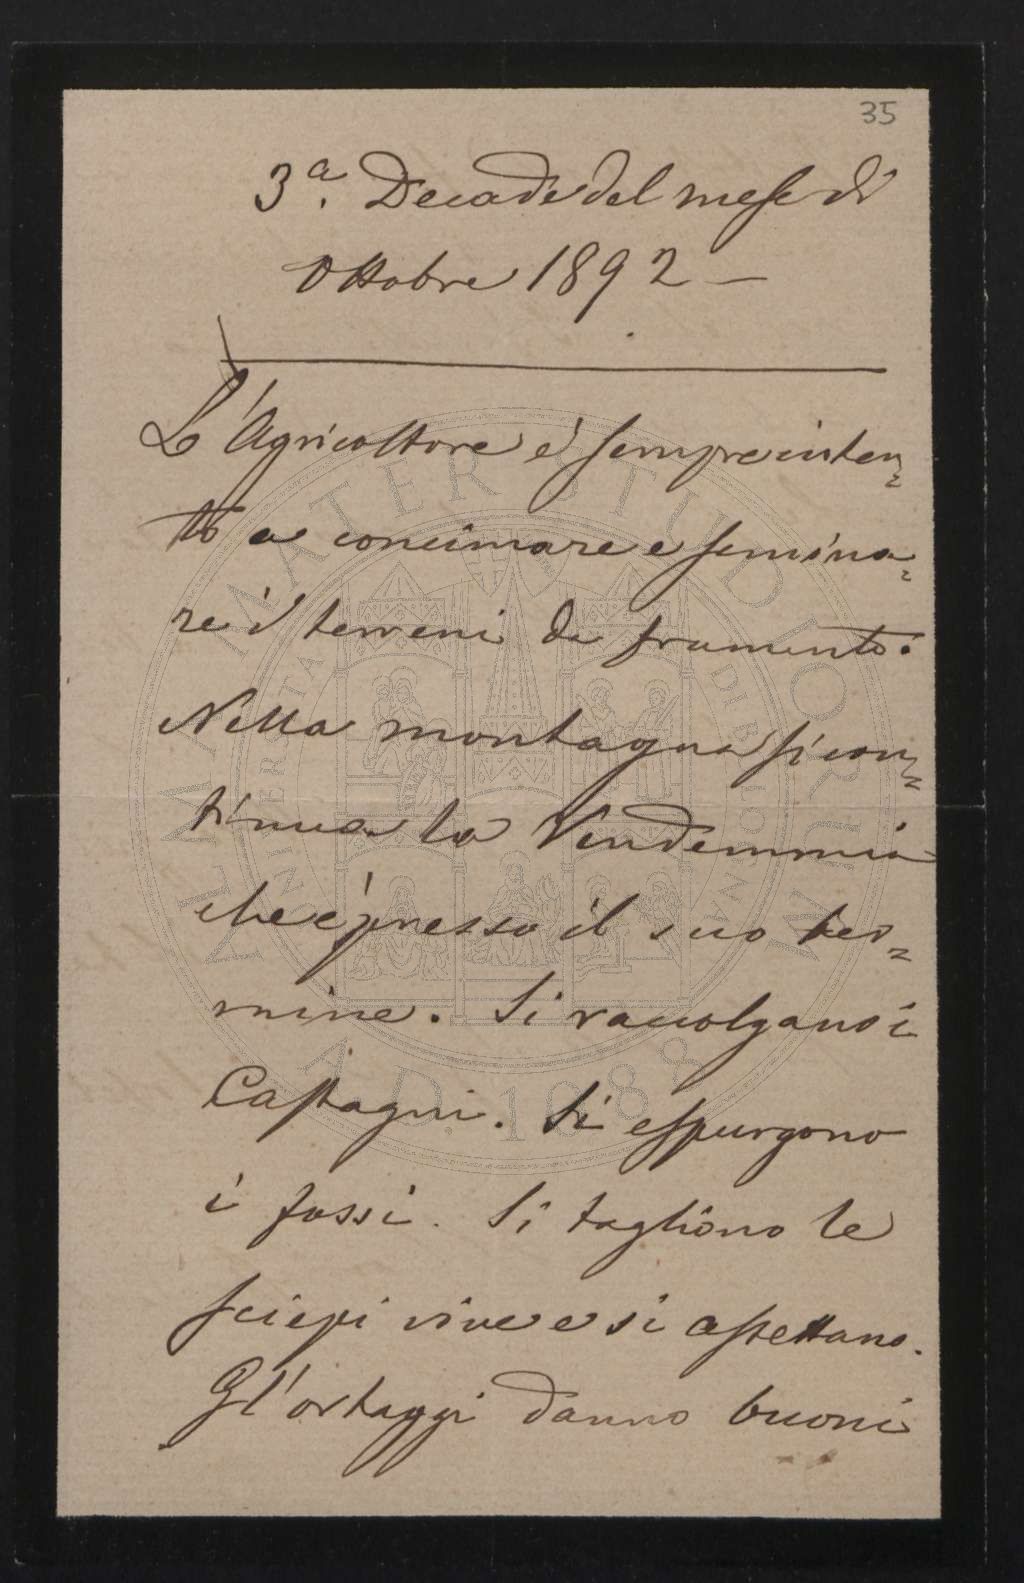 35
3ª. Decade del mese di
Ottobre 1892 –
L'Agricoltore è sempre inten=
to a concimare e semina=
re i terreni da frumento.
Nella montagna si con=
tinua la Vendemmia
che è presso il suo ter=
mine. Si raccolgano i
Castagni. Si espurgono
i fossi. Si tagliono le
sciepi vive e si assettano.
Gl'ortaggi danno buoni
ALMA MATER STUDIORUM
A.D. 1088